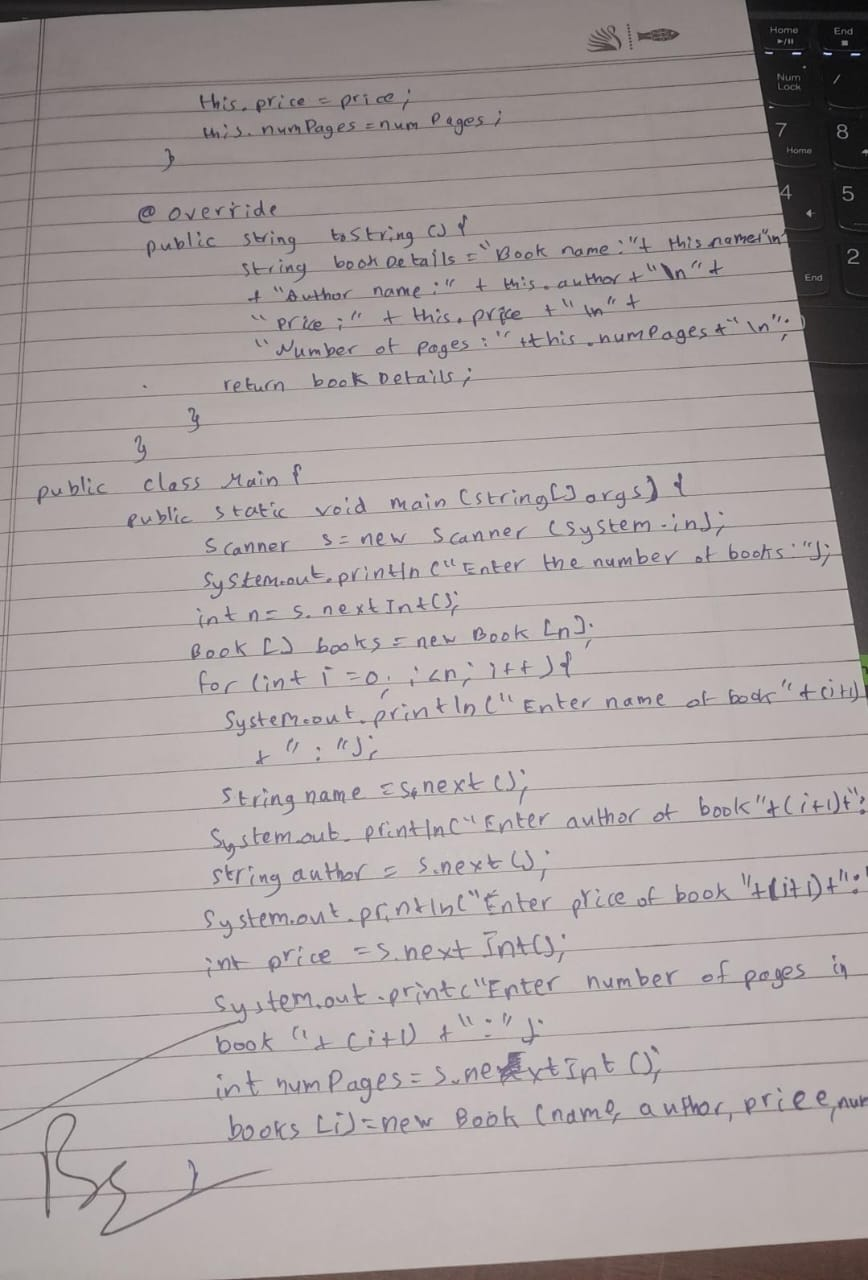 this.price = price;
this.numPages = numPages;
}
@override
public string toString() {
string bookDetails = "Book name:" + this.name+"\n"
+ "Author name:" + this.author + "\n" +
"price:" + this.price + "\n" +
"Number of pages:" + this.numPages + "\n";
return bookDetails;
}
}
public class Main {
public static void main (string[] args) {
Scanner s = new Scanner (system.in);
System.out.println ("Enter the number of books:");
int n = s.nextInt();
Book [] books = new Book [n];
for (int i = 0; i<n; i++) {
System.out.println (" Enter name of book" + (i+1)
+ " : ");
string name = s.next ();
System.out.println(" Enter author of book"+(i+1)+":
string author = s.next ();
System.out.println("Enter price of book "+(i+1)+":"
int price = s.next Int();
System.out.print("Enter number of pages in
book "+ (i+1) +":");
int numPages = s.nextInt ();
books [i] = new Book (name, author, price, num
}
Home
End
Num
Lock
/
7
Home
8
4
5
End
2